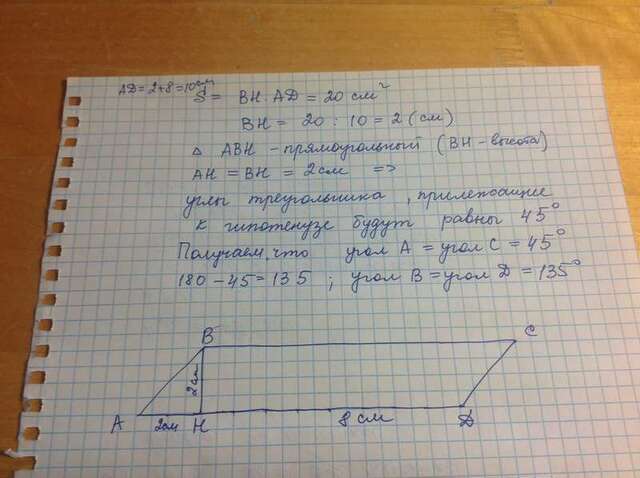 AD = 2+8=10см
S = BH · AD = 20 см²
BH = 20 : 10 = 2 (см)
△ ABH - прямоугольный (BH - высота)
AH = BH = 2см =>
углы треугольника, прилежащие
к гипотенузе будут равны 45°
Получаем, что угол A = угол C = 45°
180 - 45 = 135 ; угол B = угол D = 135°
B
C
2см
A
2см
H
8 см
D